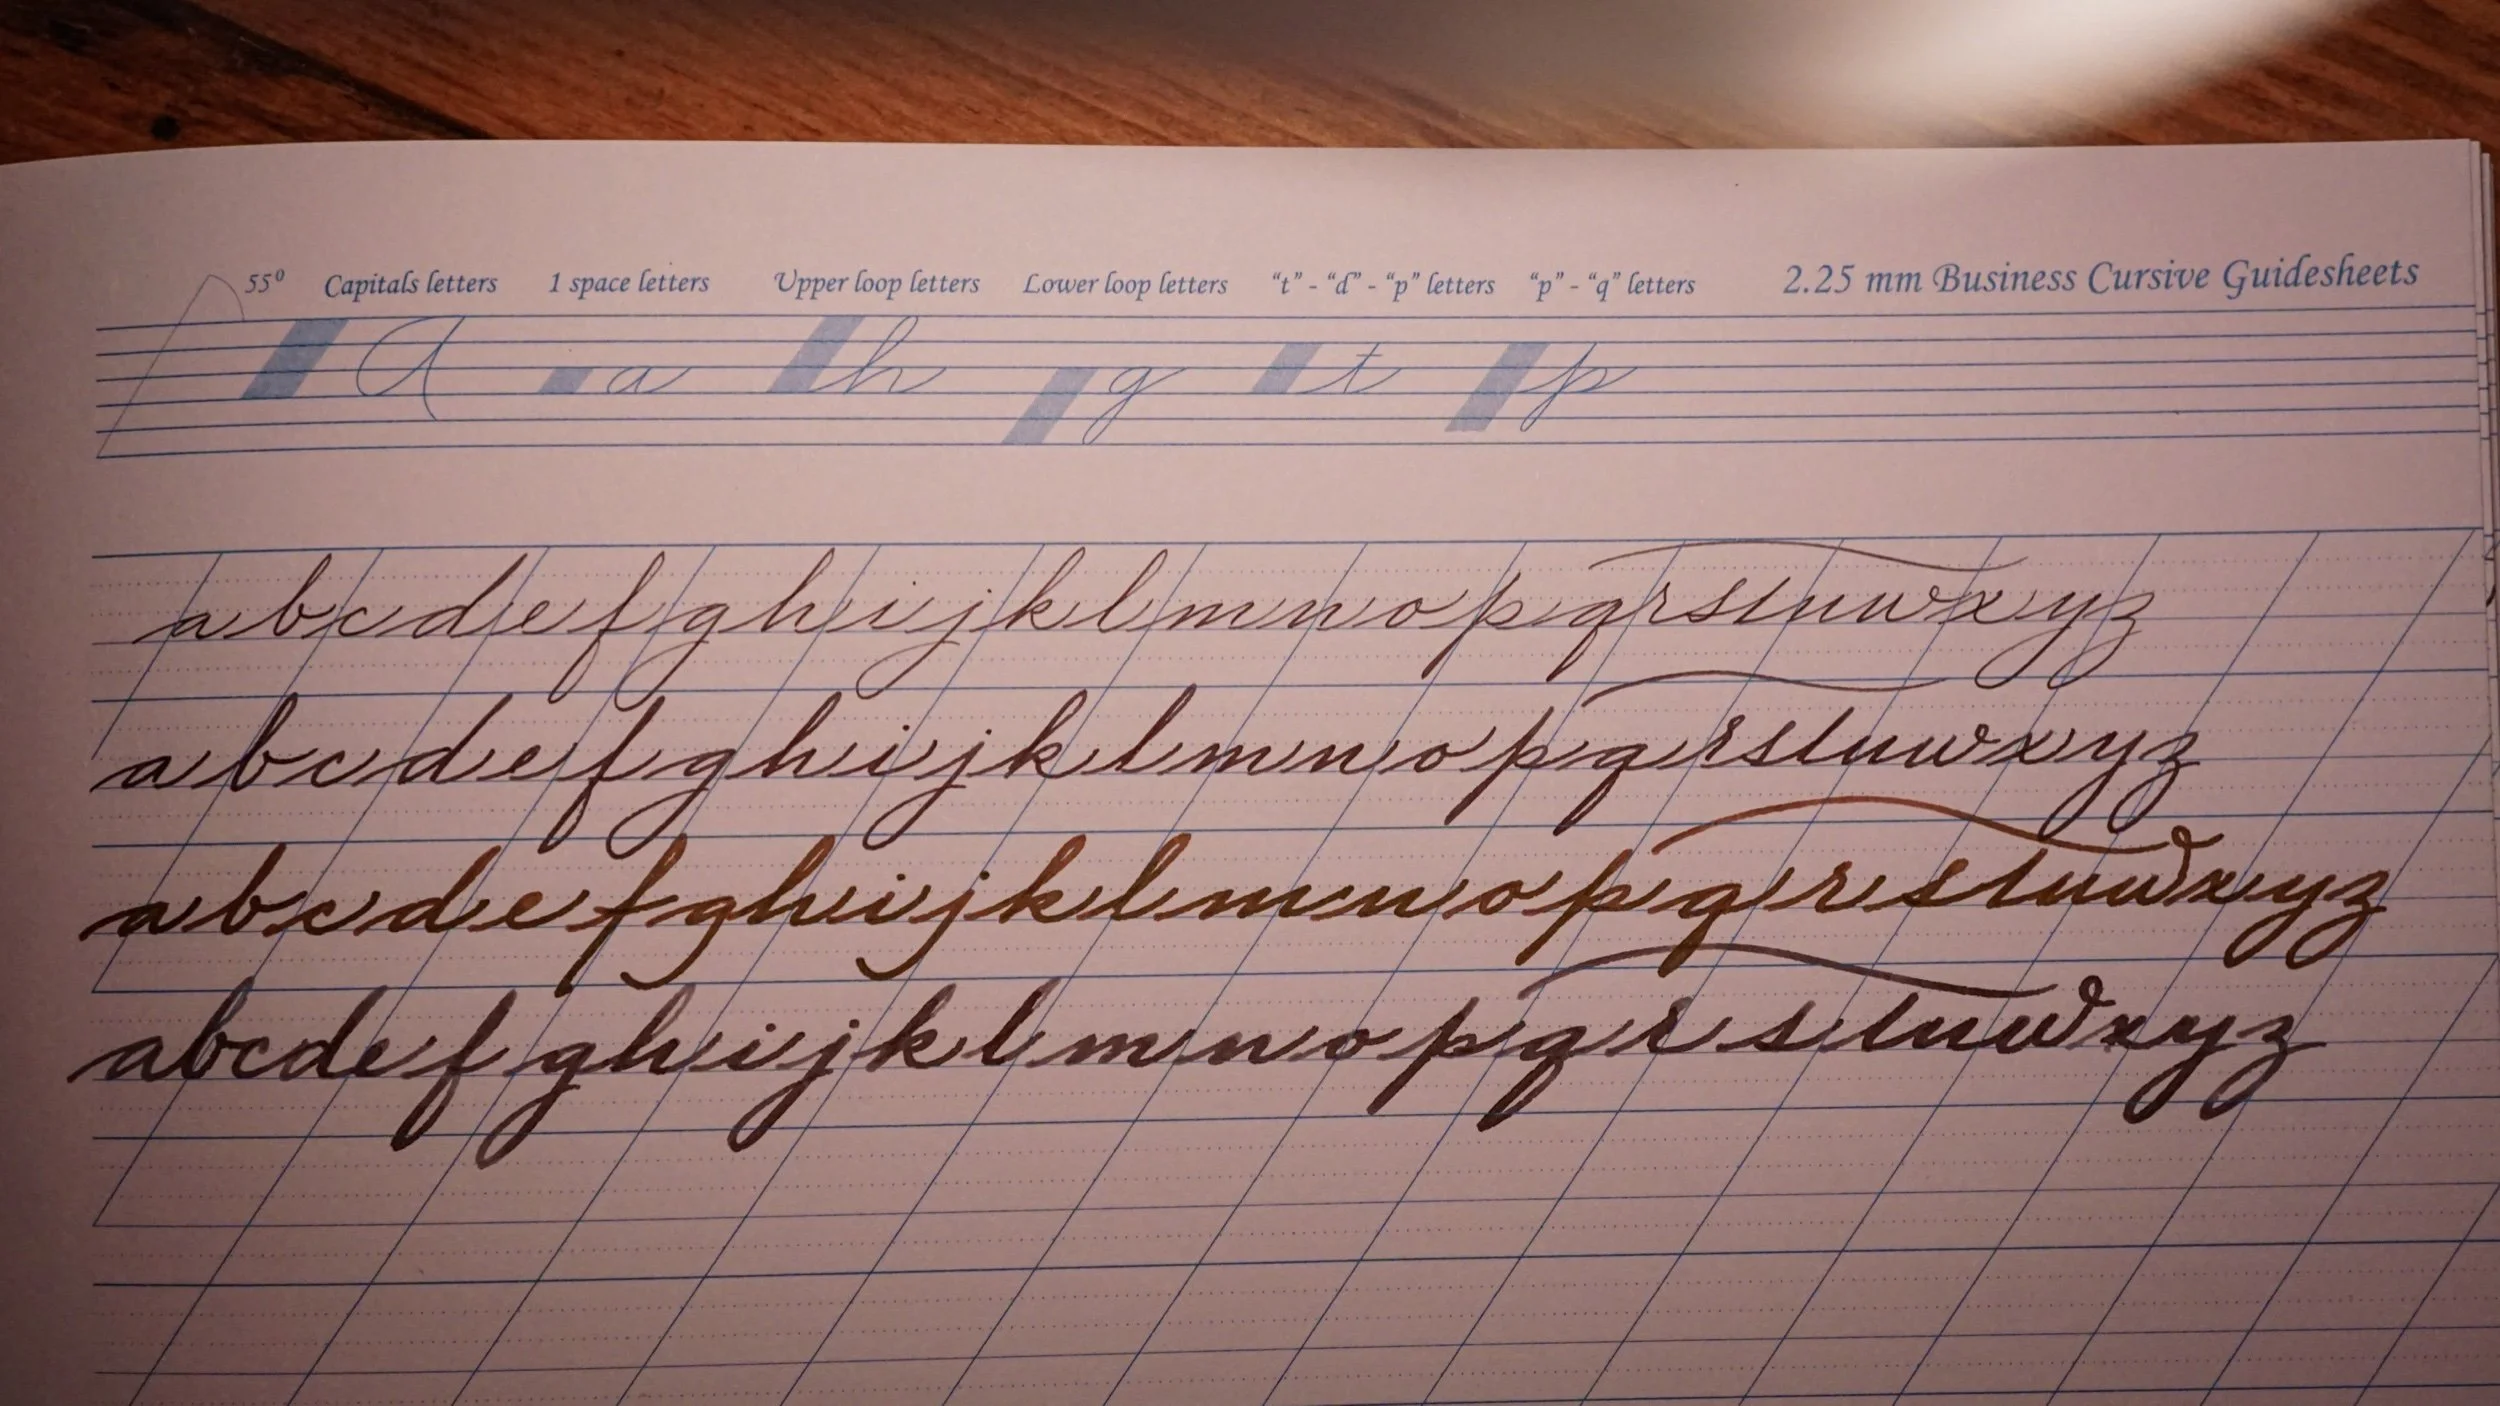 55º Capitals letters 1 space letters Upper loop letters Lower loop letters “t” - “d” - “p” letters “p” - “q” letters 2.25 mm Business Cursive Guidesheets
A a h g t p
abcdefghijklmnopqrstuwxyz
abcdefghijklmnopqrstuwxyz
abcdefghijklmnopqrstuwxyz
abcdefghijklmnopqrstuwxyz